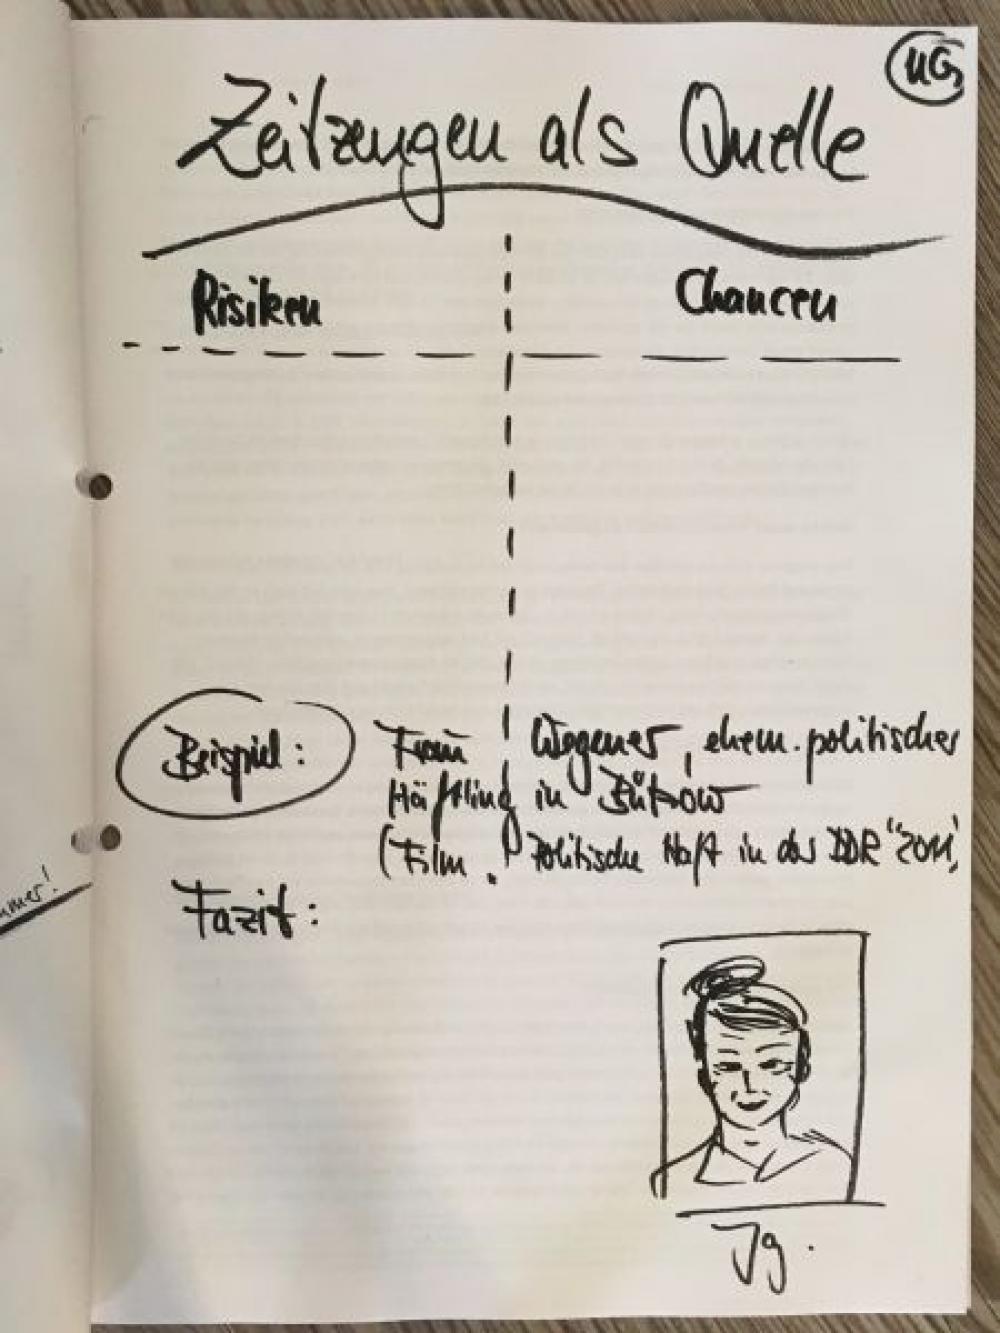 UG
Zeitzeugen als Quelle
Risiken Chancen
Beispiel: Frau Wegener, ehem. politischer
Häftling in Bützow
(Film: Politische Haft in der DDR "2011,
Fazit:
Jg.